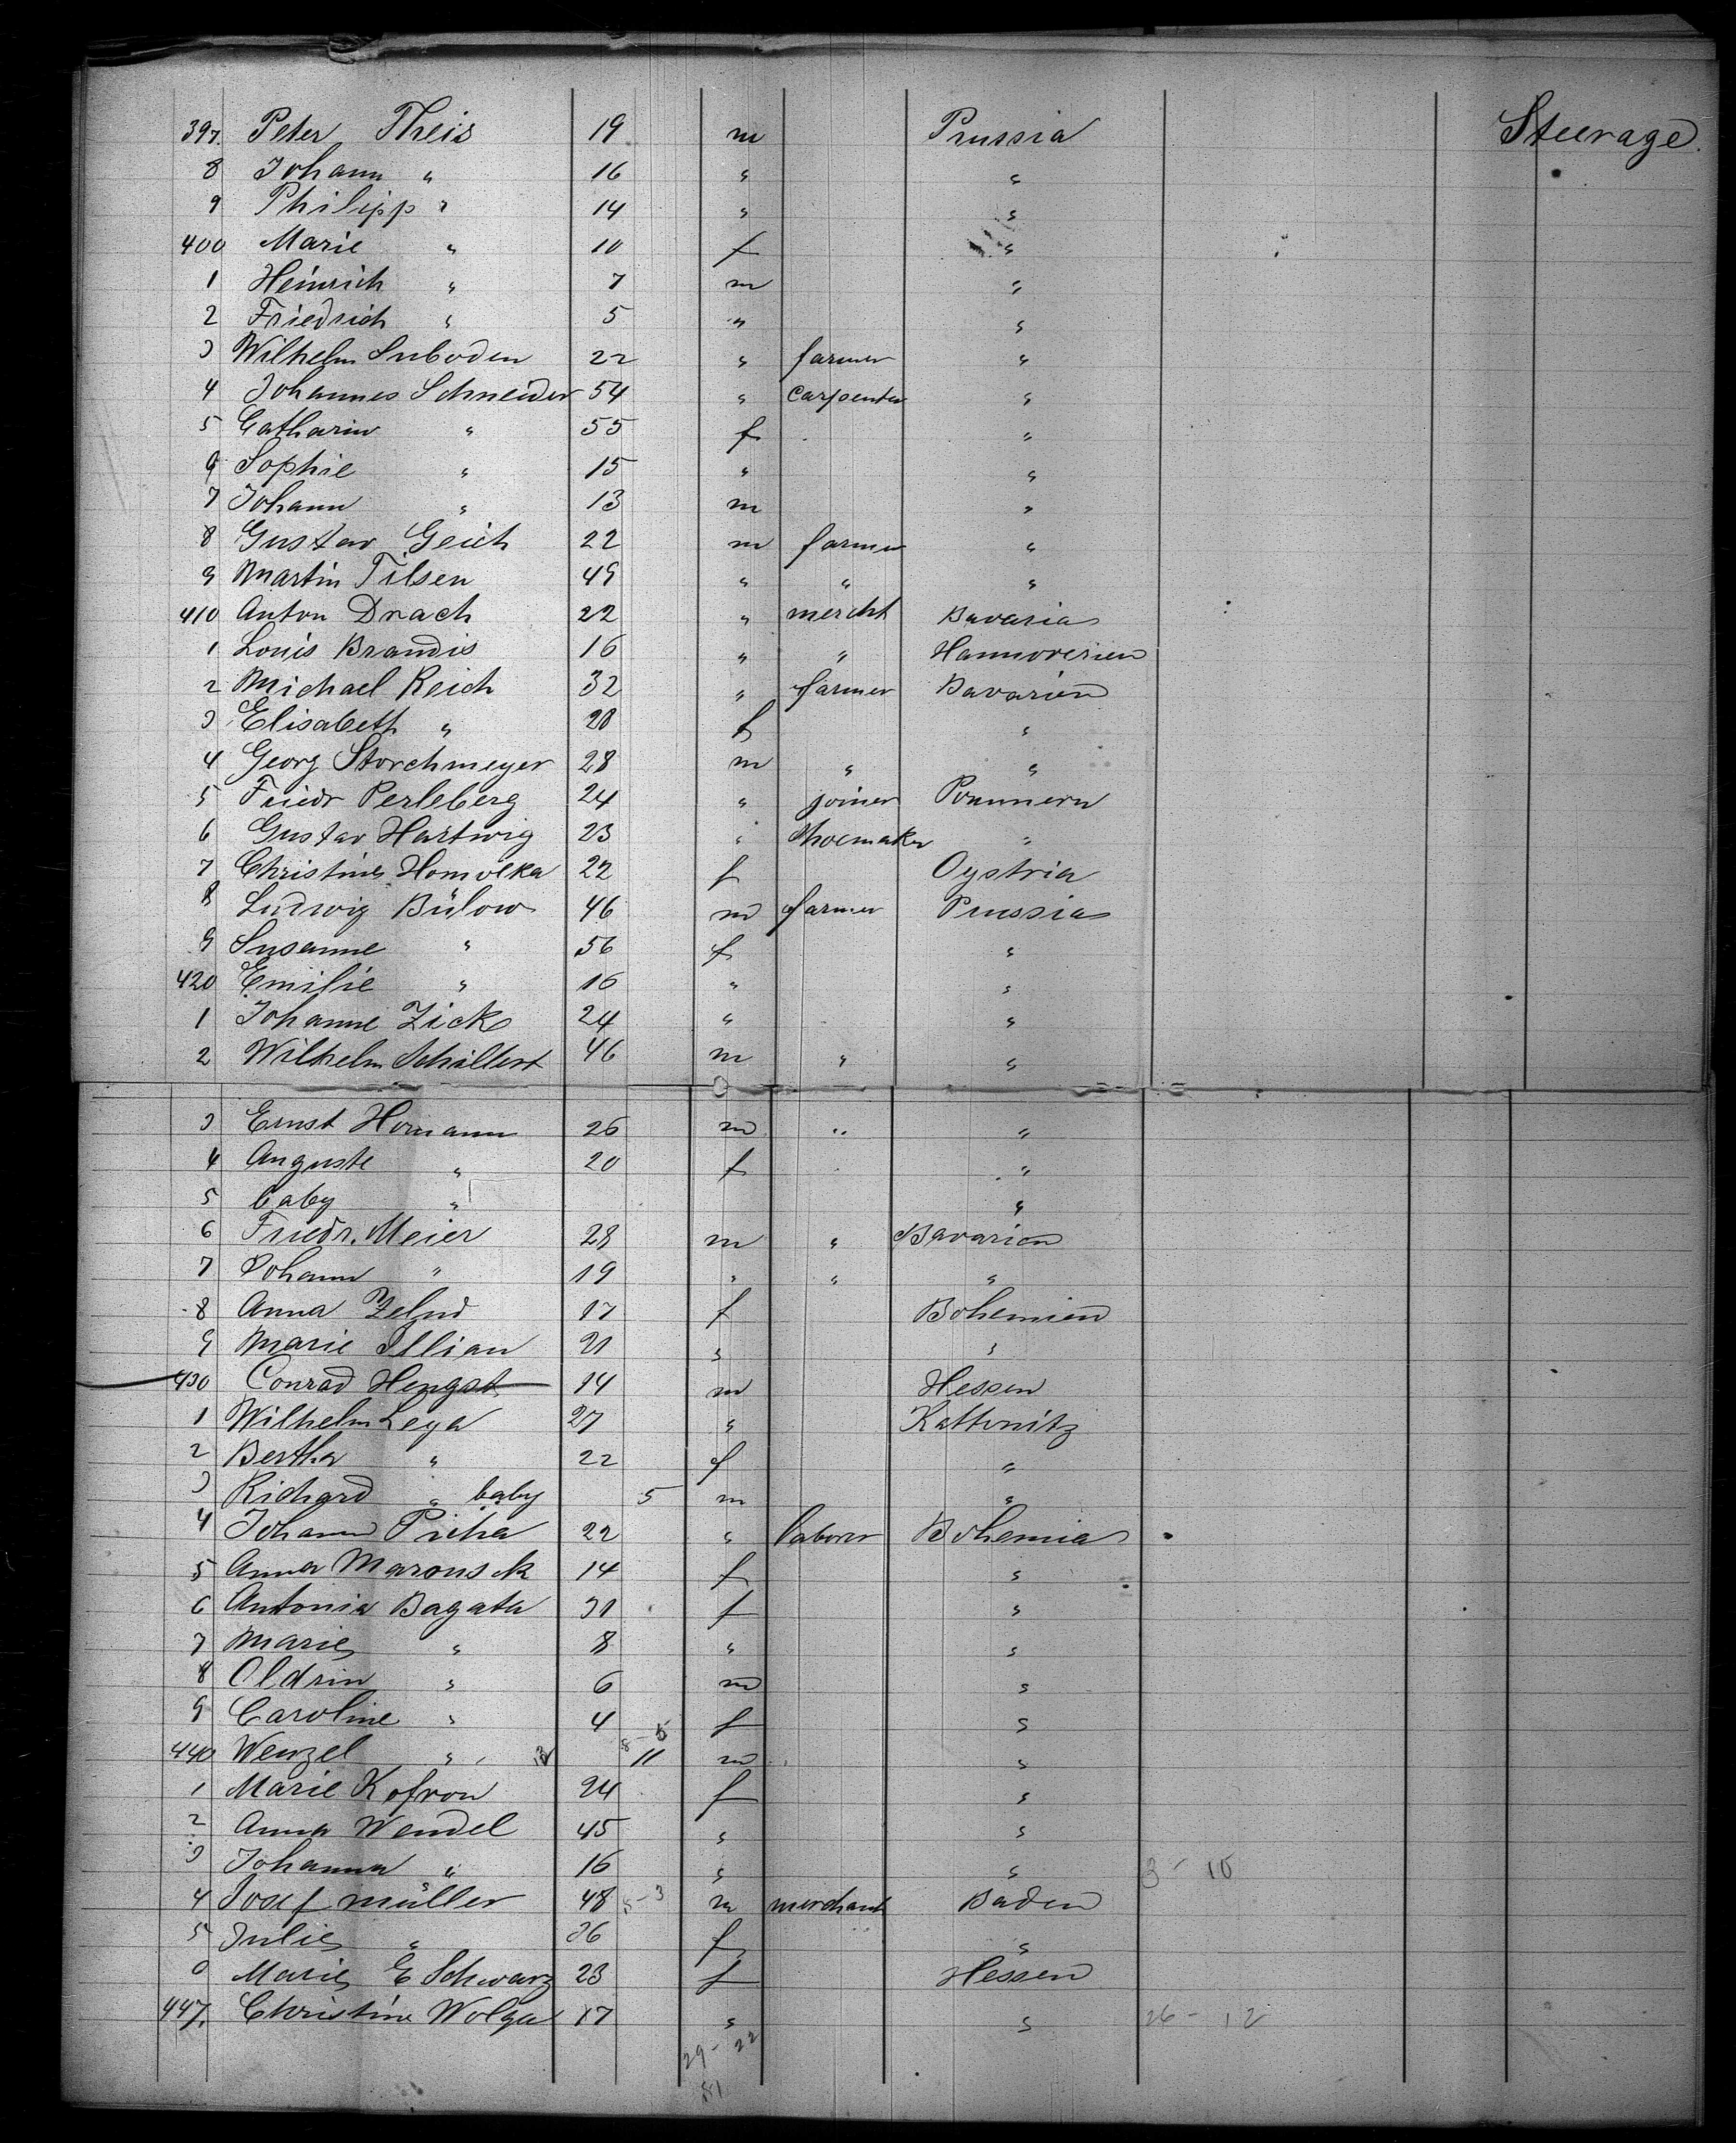 397. Peter Theis 19 m Prussia Steerage.
8 Johann " 16 " "
9 Philipp " 14 " "
400 Marie " 10 f "
1 Heinrich " 7 m "
2 Friedrich " 5 " "
3 Wilhelm Suboden 22 " farmer "
4 Johannes Schneider 54 " carpenter "
5 Catharin " 55 f "
6 Sophie " 15 " "
7 Johann " 13 m "
8 Gustav Geich 22 m farmer "
9 Martin Tilsen 49 " " "
410 Anton Drach 22 " mercht Bavaria
1 Louis Brandis 16 " " Hannoverien
2 Michael Reich 32 " farmer Bavarien
3 Elisabeth " 28 f "
4 Georg Storchmeyer 28 m " "
5 Friedr Perleberg 24 " joiner Pommern
6 Gustav Hartwig 23 " Shoemaker "
7 Christine Homolka 22 f Oystria
8 Ludwig Bülow 46 m farmer Prussia
9 Susanne " 56 f "
420 Emilie " 16 " "
1 Johanne Zick 24 " "
2 Wilhelm Schillert 46 m " "
3 Ernst Homann 26 m " "
4 Auguste " 20 f "
5 baby " "
6 Friedr. Meier 28 m " Bavarien
7 Johann " 19 " " "
8 Anna 17 f Bohemien
9 Marie Illian 21 " "
430 Conrad Hengst 14 m Hessen
1 Wilhelm Leya 27 " Kattowitz
2 Bertha " 22 f "
3 Richard " baby 5 m "
4 Johann Picha 22 " laborer Bohemia
5 Anna Marousek 14 f "
6 Antonia Bagata 31 f "
7 Marie " 8 " "
8 Oldrin " 6 m "
9 Caroline " 4 f "
440 Wenzel " 11 m "
1 Marie Kofron 24 f "
2 Anna Wendel 45 " "
3 Johanna " 16 " " 3 - 10
4 Josef Müller 48 m merchant Baden
5 Julie " 36 f "
6 Marie E Schwarz 23 f Hessen
447. Christine Wolga 17 " " 26 - 12
29 - 22
51